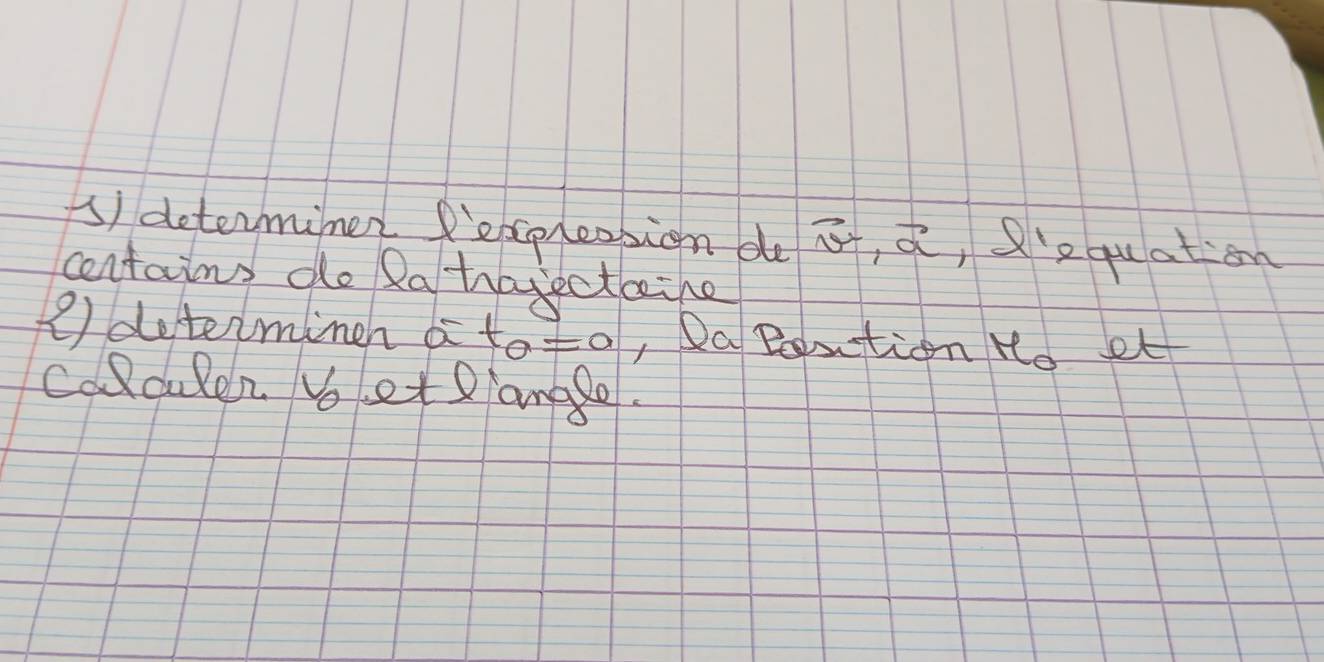 1) determiner l'expression de v⃗, a⃗, l'equation
certains de la trajectoire
2) determiner à t₀=0, la Position M₀ et
Calculer V₀ et l'angle.